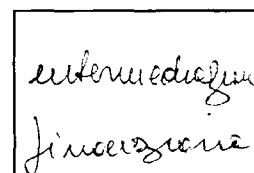 intermediazion
finanziaria